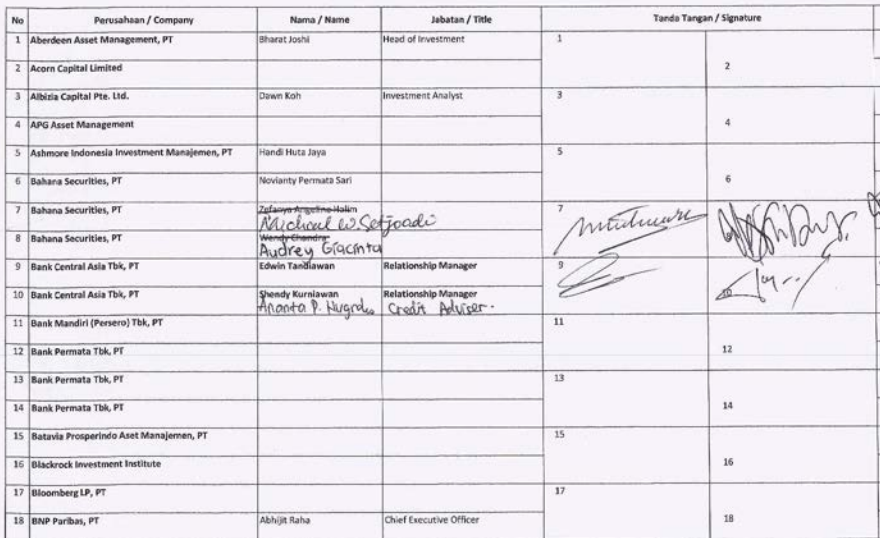 No Perusahaan / Company Nama / Name Jabatan / Title Tanda Tangan / Signature
1 Aberdeen Asset Management, PT Bharat Joshi Head of Investment 1
2 Acorn Capital Limited 2
3 Albizia Capital Pte. Ltd. Dawn Koh Investment Analyst 3
4 APG Asset Management 4
5 Ashmore Indonesia Investment Manajemen, PT Handi Huta Jaya 5
6 Bahana Securities, PT Novianty Permata Sari 6
7 Bahana Securities, PT Zefanya Angeline Halim 7
Michael W. Setjoadi
8 Bahana Securities, PT Wendy Chandra
Audrey Giacinta
9 Bank Central Asia Tbk, PT Edwin Tandiawan Relationship Manager 9
10 Bank Central Asia Tbk, PT Shendy Kurniawan Relationship Manager 10
Ananta P. Credit Adviser.
11 Bank Mandiri (Persero) Tbk, PT 11
12 Bank Permata Tbk, PT 12
13 Bank Permata Tbk, PT 13
14 Bank Permata Tbk, PT 14
15 Batavia Prosperindo Aset Manajemen, PT 15
16 Blackrock Investment Institute 16
17 Bloomberg LP, PT 17
18 BNP Paribas, PT Abhijit Raha Chief Executive Officer 18